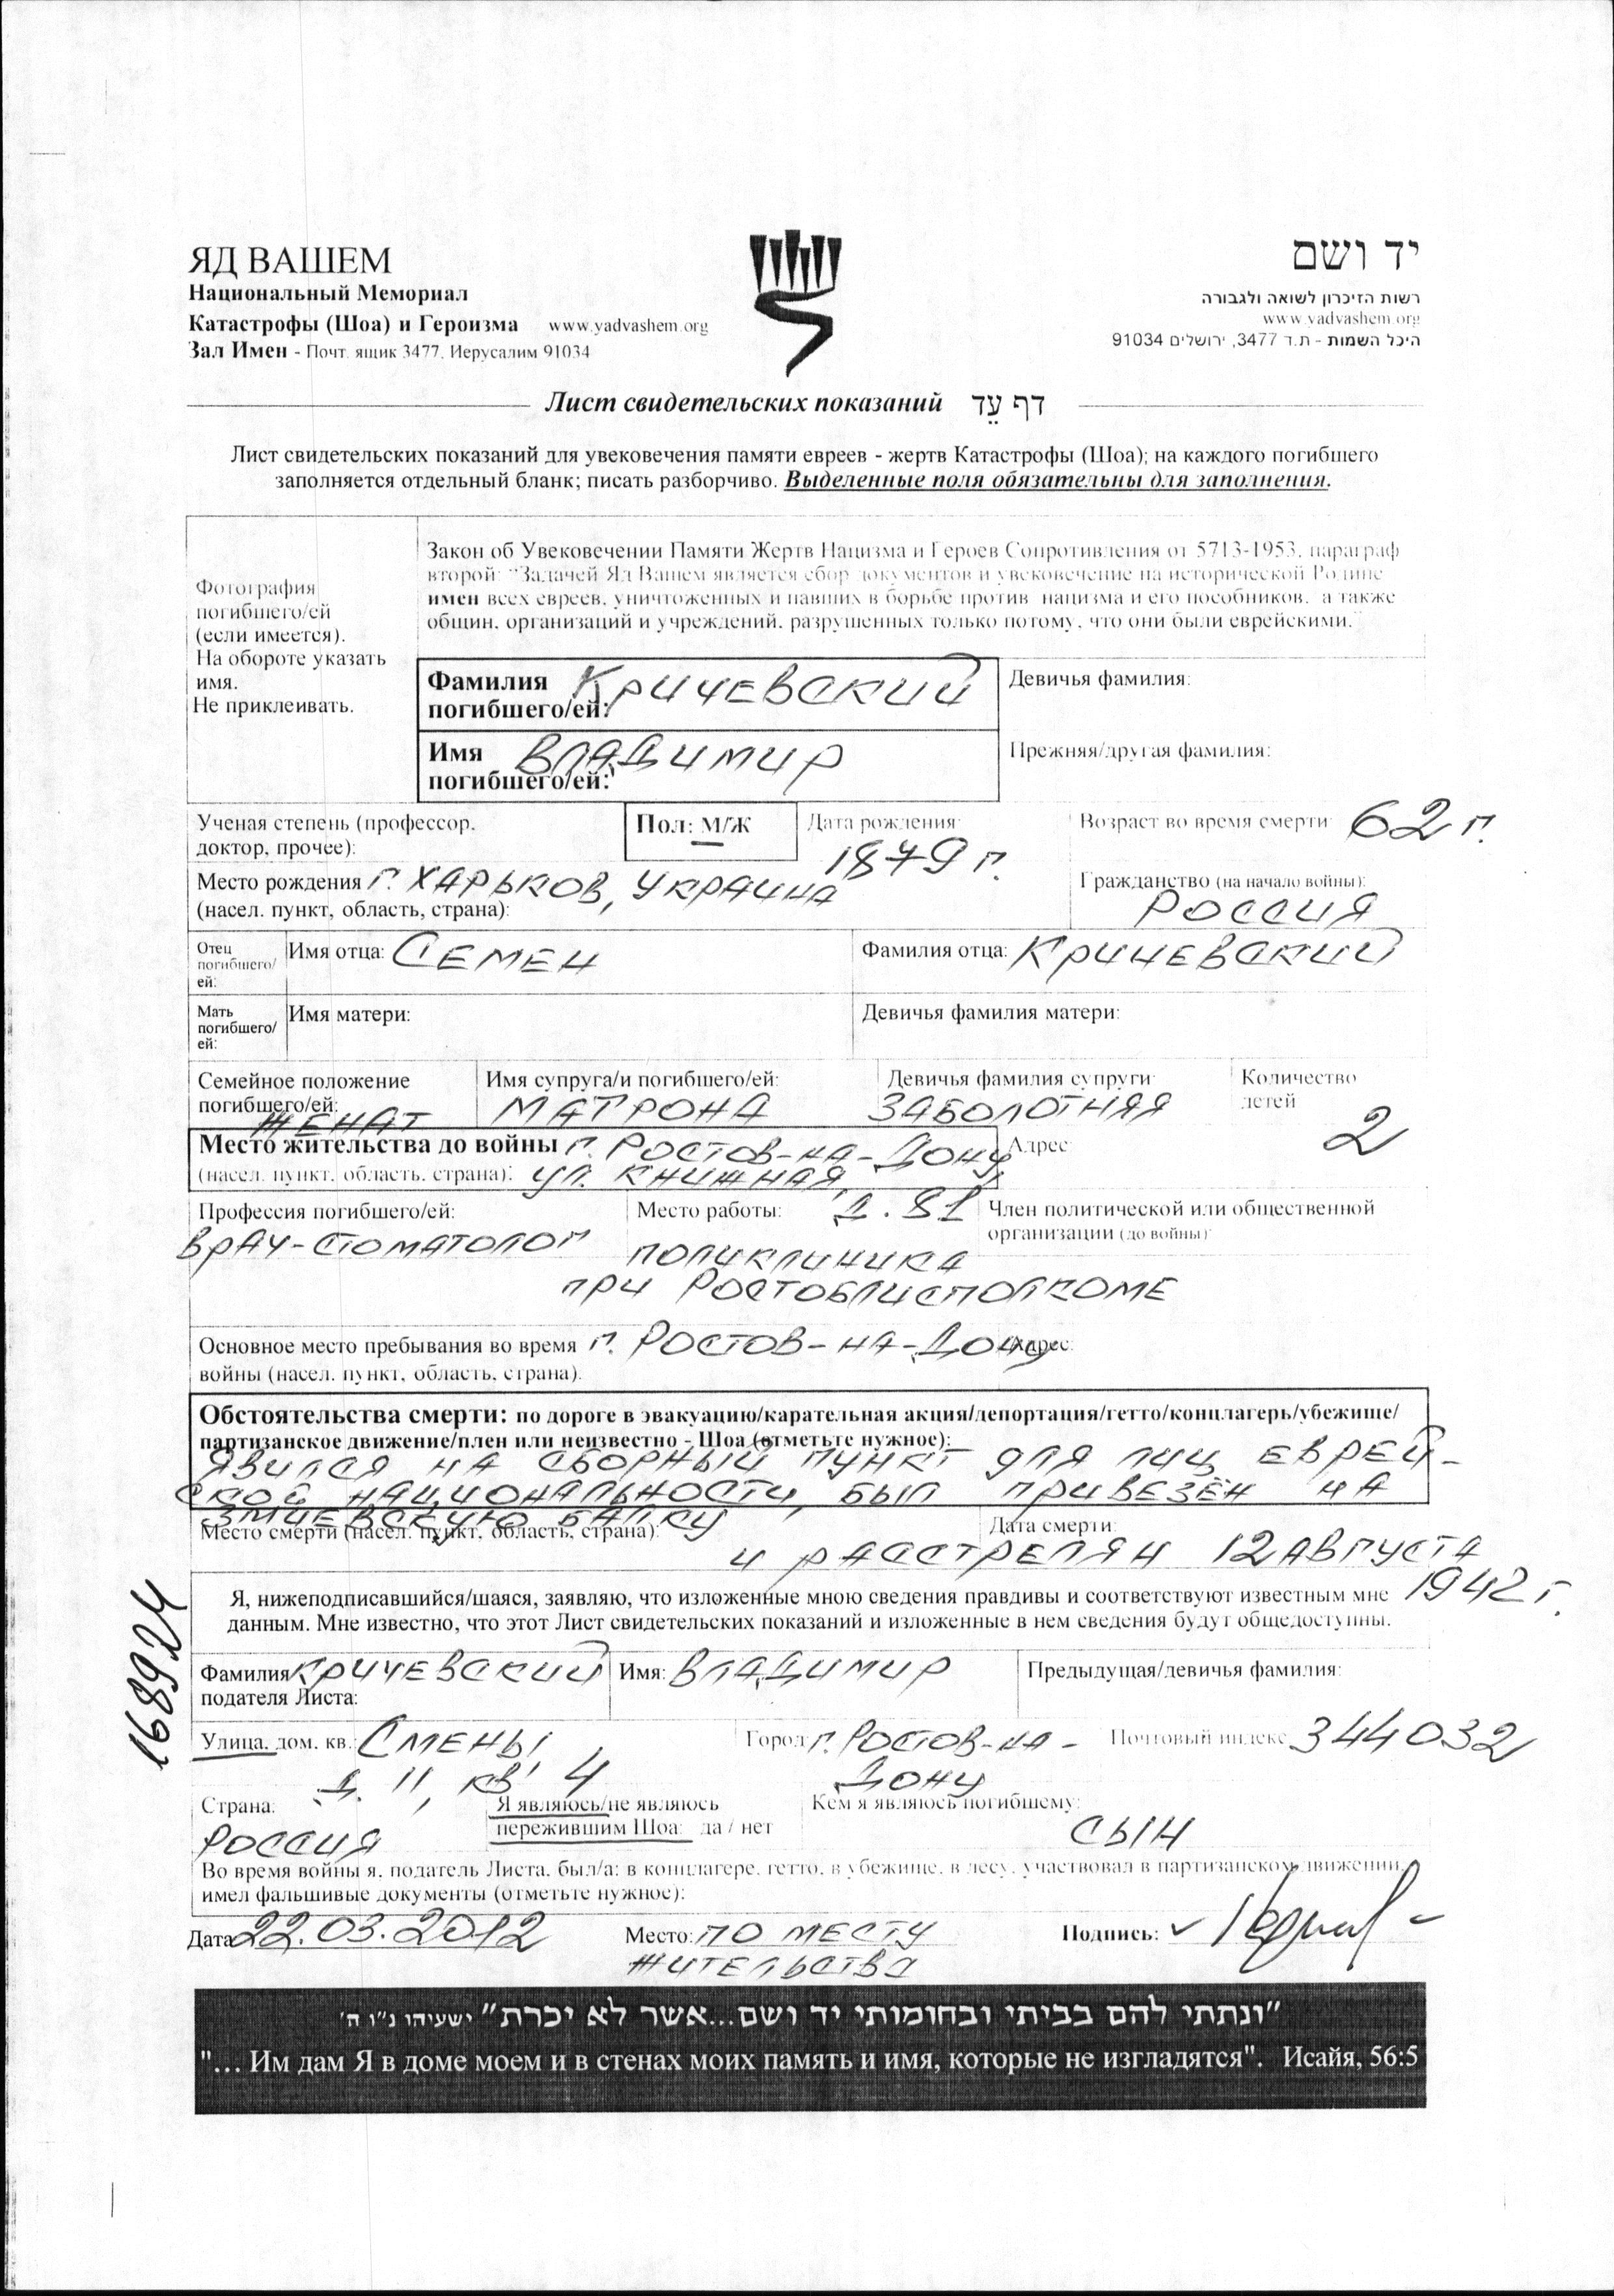 ЯД ВАШЕМ
Национальный Мемориал
Катастрофы (Шоа) и Героизма www.yadvashem.org
Зал Имен - Почт. ящик 3477, Иерусалим 91034
יד ושם
רשות הזיכרון לשואה ולגבורה
www.yadvashem.org
היכל השמות - ת.ד 3477, ירושלים 91034
Лист свидетельских показаний דף עֵד
Лист свидетельских показаний для увековечения памяти евреев - жертв Катастрофы (Шоа); на каждого погибшего
заполняется отдельный бланк; писать разборчиво. Выделенные поля обязательны для заполнения.
Фотография
погибшего/ей
(если имеется).
На обороте указать
имя.
Не приклеивать.
Закон об Увековечении Памяти Жертв Нацизма и Героев Сопротивления от 5713-1953, параграф
второй: "Задачей Яд Вашем является сбор документов и увековечение на исторической Родине
имен всех евреев, уничтоженных и павших в борьбе против нацизма и его пособников, а также
общин, организаций и учреждений, разрушенных только потому, что они были еврейскими."
Фамилия погибшего/ей: Кричевский
Девичья фамилия:
Имя погибшего/ей: Владимир
Прежняя/другая фамилия:
Ученая степень (профессор, доктор, прочее):
Пол: М/Ж
Дата рождения: 1879 г.
Возраст во время смерти: 62 г.
Место рождения г. Харьков, Украина
(насел. пункт, область, страна):
Гражданство (на начало войны):
Россия
Отец погибшего/ей:
Имя отца: Семен
Фамилия отца: Кричевский
Мать погибшего/ей:
Имя матери:
Девичья фамилия матери:
Семейное положение погибшего/ей: женат
Имя супруга/и погибшего/ей: Матрона
Девичья фамилия супруги: Заболотняя
Количество детей 2
Место жительства до войны г. Ростов-на-Дону
(насел. пункт, область, страна): ул. Книжная, д. 81
Адрес:
Профессия погибшего/ей:
врач-стоматолог
Место работы:
поликлиника
при Ростоблисполкоме
Член политической или общественной
организации (до войны):
Основное место пребывания во время г. Ростов-на-Дону Адрес:
войны (насел. пункт, область, страна).
Обстоятельства смерти: по дороге в эвакуацию/карательная акция/депортация/гетто/концлагерь/убежище/
партизанское движение/плен или неизвестно - Шоа (отметьте нужное):
явился на сборный пункт для лиц еврей-
ской национальности, был привезён на
Змиевскую балку
Место смерти (насел. пункт, область, страна):
Дата смерти:
и расстрелян 12 августа
1942 г.
Я, нижеподписавшийся/шаяся, заявляю, что изложенные мною сведения правдивы и соответствуют известным мне
данным. Мне известно, что этот Лист свидетельских показаний и изложенные в нем сведения будут общедоступны.
168924
Фамилия подателя Листа: Кричевский
Имя: Владимир
Предыдущая/девичья фамилия:
Улица, дом. кв.: Смены,
д. 11, кв. 4
Город: г. Ростов-на-
Дону
Почтовый индекс 344032
Страна:
Россия
Я являюсь/не являюсь
пережившим Шоа: да / нет
Кем я являюсь погибшему:
сын
Во время войны я, податель Листа, был/а: в концлагере, гетто, в убежище, в лесу, участвовал в партизанском движении,
имел фальшивые документы (отметьте нужное):
Дата 22.03.2012
Место: по месту
жительства
Подпись:
"ונתתי להם בביתי ובחומותי יד ושם...אשר לא יכרת" ישעיהו נ"ו ה'
"... Им дам Я в доме моем и в стенах моих память и имя, которые не изгладятся". Исайя, 56:5